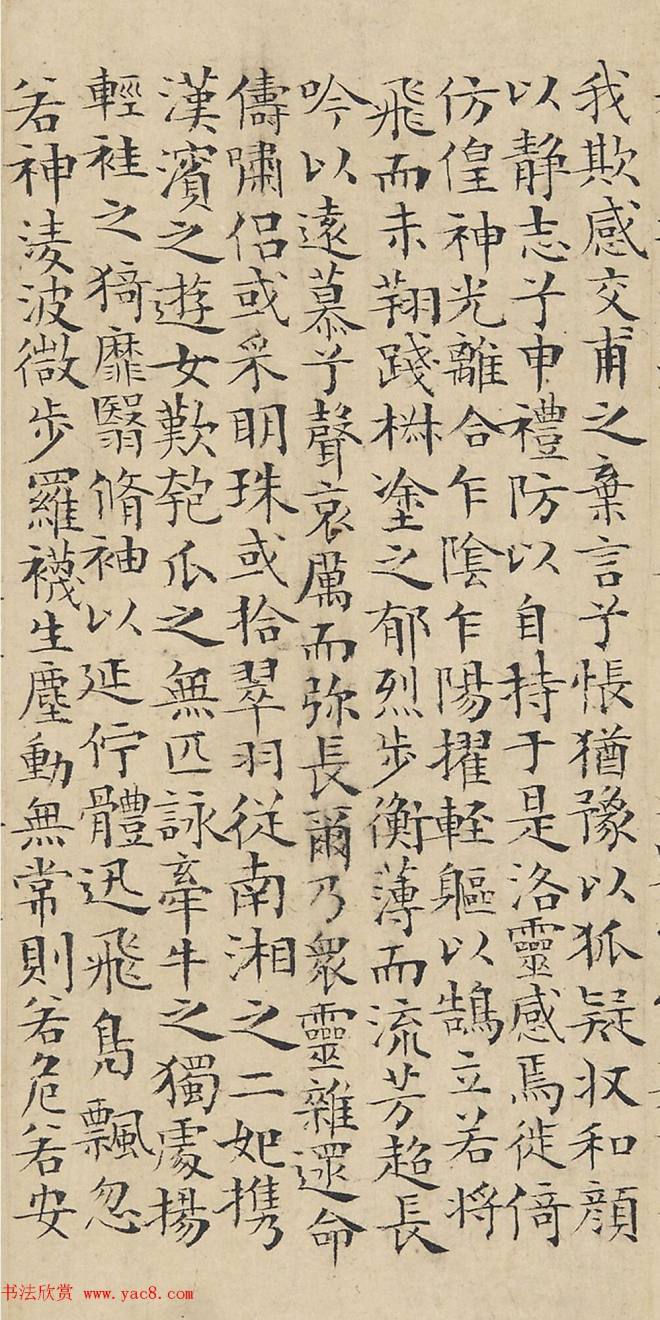 我欺感交甫之棄言兮悵猶豫以狐疑収和顔
以静志兮申禮防以自持于是洛靈感焉徙倚
仿偟神光離合乍陰乍陽擢軽軀以鵠立若將
飛而未翔踐椒塗之郁烈步衡薄而流芳超長
吟以遠慕兮聲哀厲而弥長爾乃衆靈雜遝命
儔嘯侶或采明珠或拾翠羽從南湘之二妃携
漢濱之遊女歎匏瓜之無匹詠牽牛之獨處揚
輕袿之猗靡翳脩袖以延佇體迅飛鳧飄忽
若神淩波微步羅襪生塵動無常則若危若安
书法欣赏 www.yac8.com